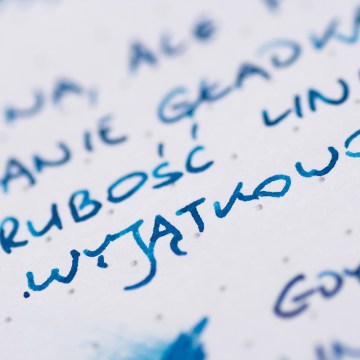 NA, ALE
ANIE GŁADK
RUBOŚĆ LIN
WYJĄTKOWO
GDY